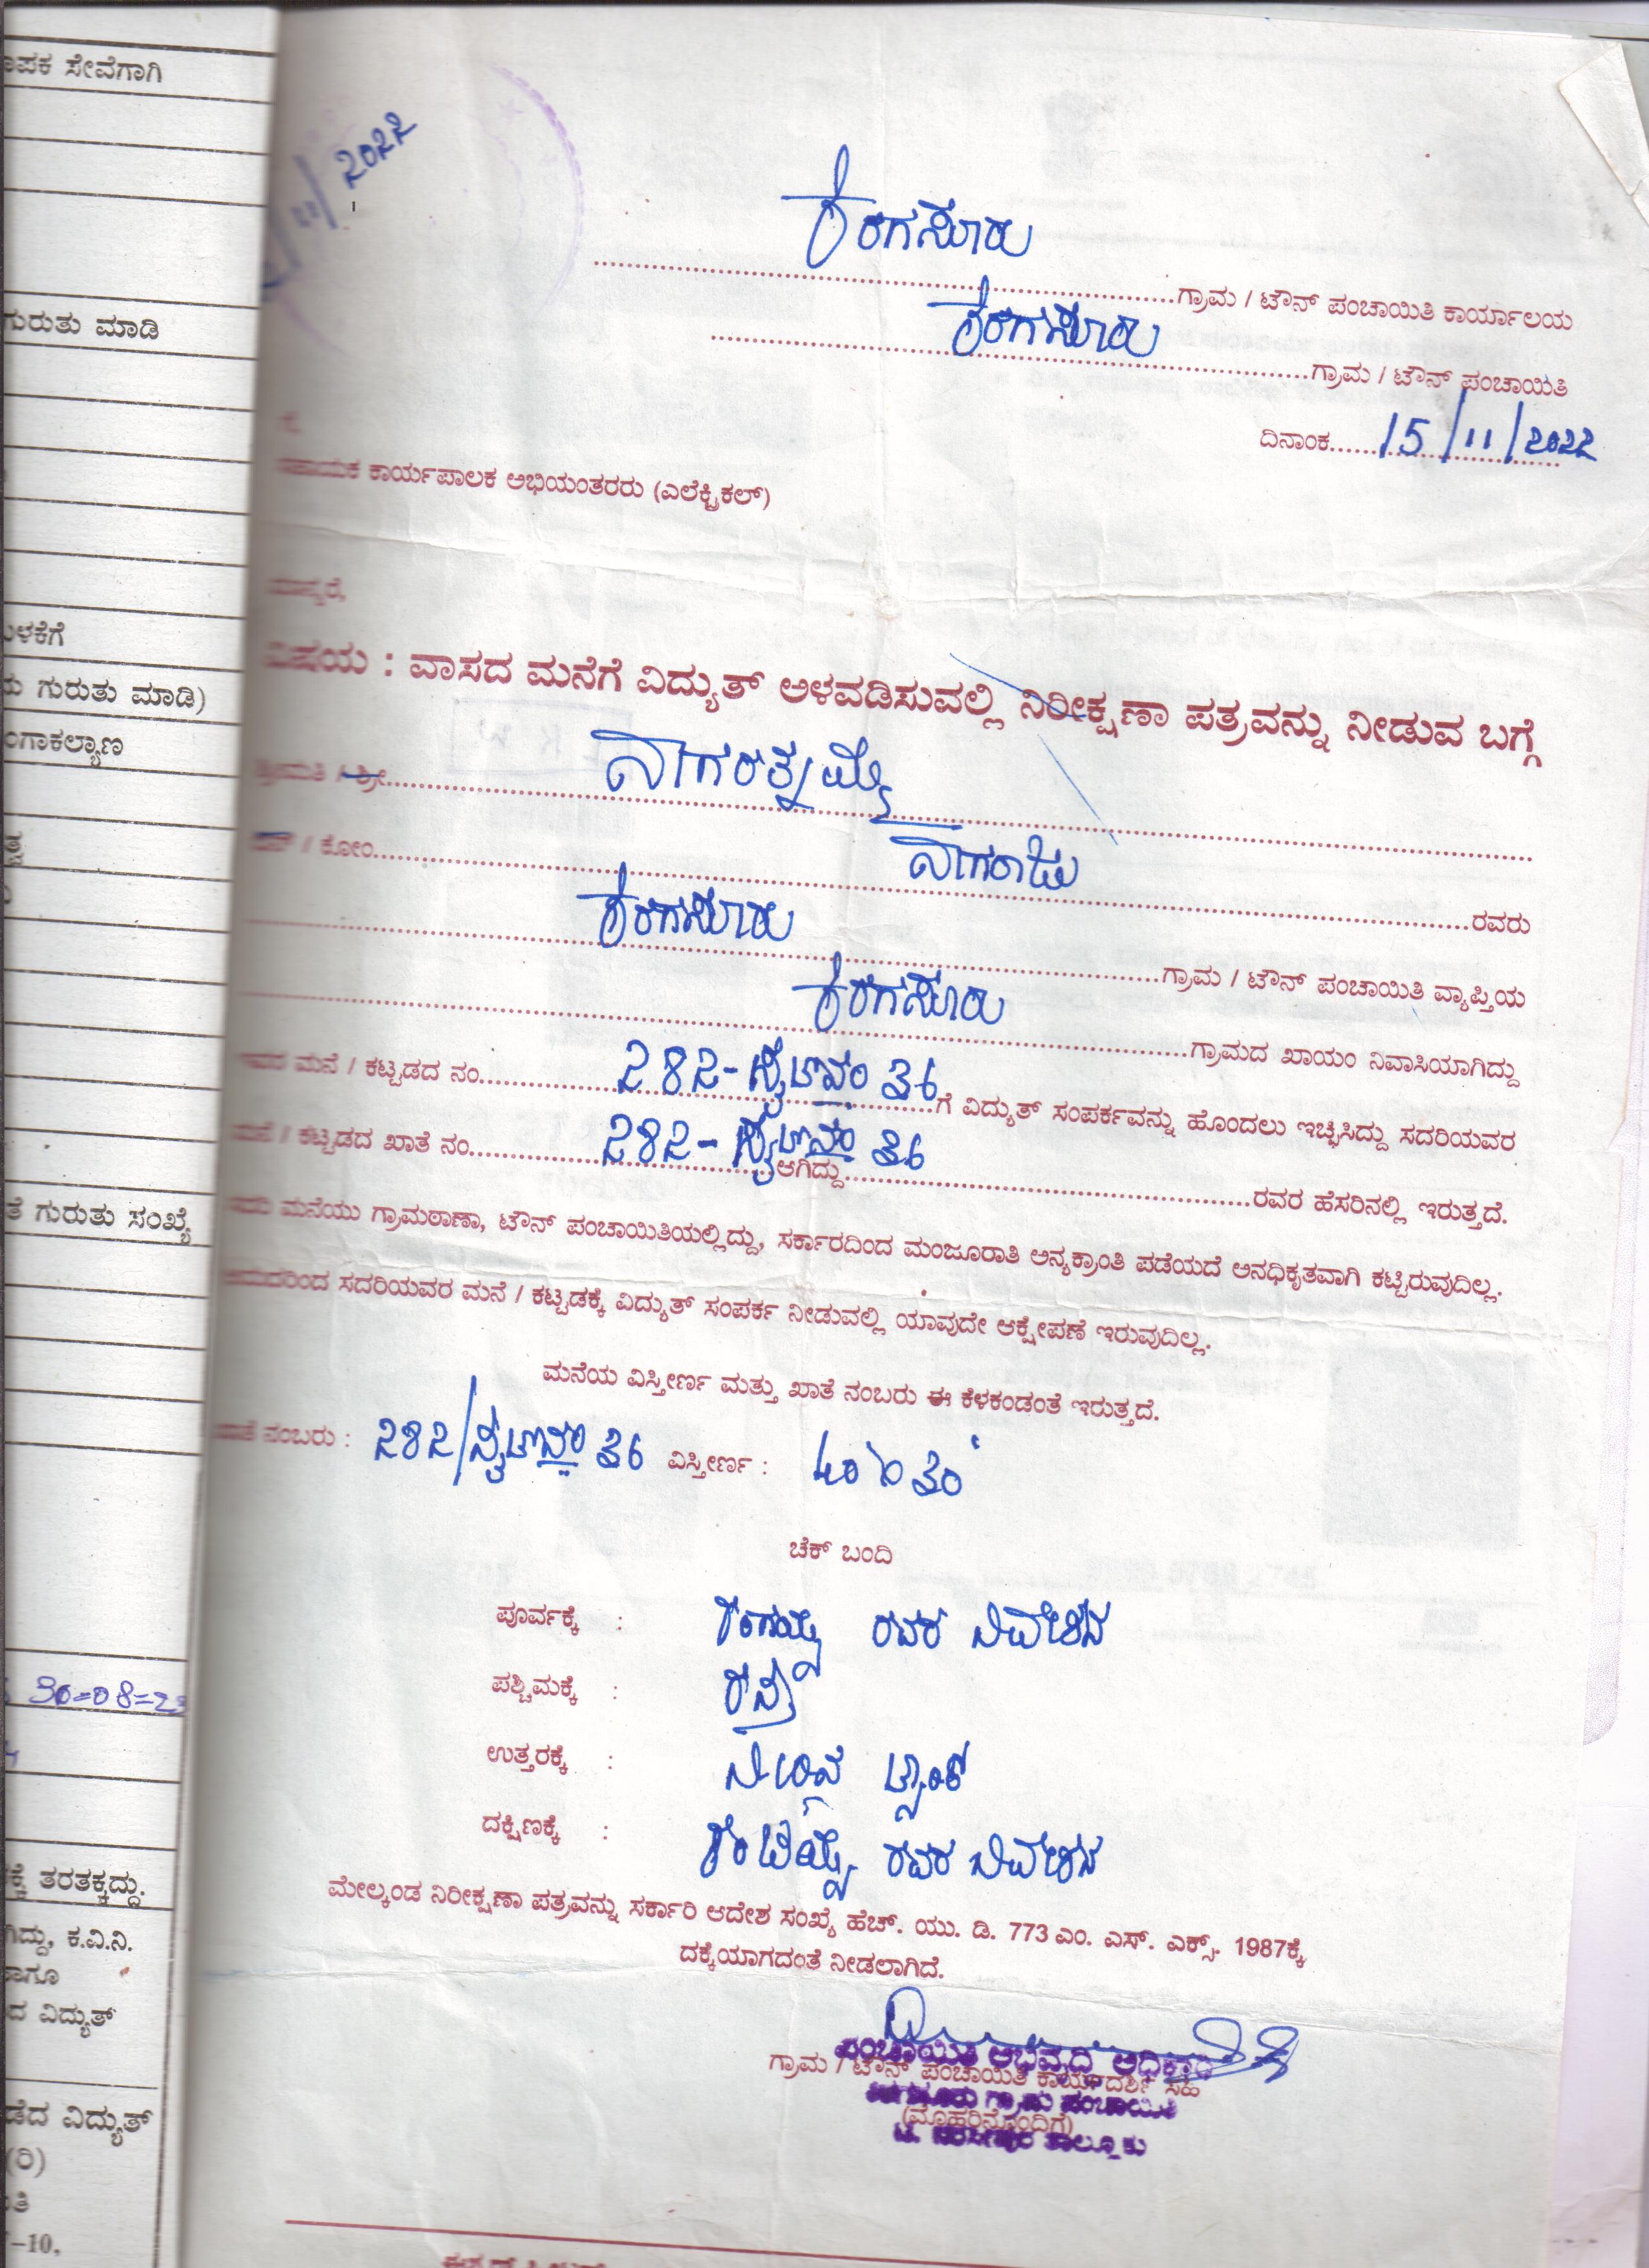 ಸೇವೆಗಾಗಿ
ಗುರುತು ಮಾಡಿ
ಗುರುತು ಮಾಡಿ)
ಗುರುತು ಸಂಖ್ಯೆ
30=08=2
ತರತಕ್ಕದ್ದು.
ಕ.ವಿ.ನಿ.
ವಿದ್ಯುತ್
ವಿದ್ಯುತ್
-10,
11/2022
ಗ್ರಾಮ / ಟೌನ್ ಪಂಚಾಯಿತಿ ಕಾರ್ಯಾಲಯ
ಗ್ರಾಮ / ಟೌನ್ ಪಂಚಾಯಿತಿ
ದಿನಾಂಕ 15/11/2022
ಸಹಾಯಕ ಕಾರ್ಯಪಾಲಕ ಅಭಿಯಂತರರು (ಎಲೆಕ್ಟ್ರಿಕಲ್)
ಮಾನ್ಯರೆ,
ವಿಷಯ : ವಾಸದ ಮನೆಗೆ ವಿದ್ಯುತ್ ಅಳವಡಿಸುವಲ್ಲಿ ನಿರೀಕ್ಷಣಾ ಪತ್ರವನ್ನು ನೀಡುವ ಬಗ್ಗೆ
ಶ್ರೀಮತಿ / ಶ್ರೀ ನಾಗರತ್ನಮ್ಮ
ಬಿನ್ / ಕೋಂ ನಾಗರಾಜು ರವರು
ಗ್ರಾಮ / ಟೌನ್ ಪಂಚಾಯಿತಿ ವ್ಯಾಪ್ತಿಯ
ಗ್ರಾಮದ ಖಾಯಂ ನಿವಾಸಿಯಾಗಿದ್ದು
ಇವರ ಮನೆ / ಕಟ್ಟಡದ ನಂ. 282- ಸೈಟ್ ನಂ 36 ಗೆ ವಿದ್ಯುತ್ ಸಂಪರ್ಕವನ್ನು ಹೊಂದಲು ಇಚ್ಛಿಸಿದ್ದು ಸದರಿಯವರ
ಮನೆ / ಕಟ್ಟಡದ ಖಾತೆ ನಂ. 282- ಸೈಟ್ ನಂ 36 ಆಗಿದ್ದು ರವರ ಹೆಸರಿನಲ್ಲಿ ಇರುತ್ತದೆ.
ಸದರಿ ಮನೆಯು ಗ್ರಾಮಠಾಣಾ, ಟೌನ್ ಪಂಚಾಯಿತಿಯಲ್ಲಿದ್ದು, ಸರ್ಕಾರದಿಂದ ಮಂಜೂರಾತಿ ಅನ್ಯಕ್ರಾಂತಿ ಪಡೆಯದೆ ಅನಧಿಕೃತವಾಗಿ ಕಟ್ಟಿರುವುದಿಲ್ಲ.
ಆದುದರಿಂದ ಸದರಿಯವರ ಮನೆ / ಕಟ್ಟಡಕ್ಕೆ ವಿದ್ಯುತ್ ಸಂಪರ್ಕ ನೀಡುವಲ್ಲಿ ಯಾವುದೇ ಆಕ್ಷೇಪಣೆ ಇರುವುದಿಲ್ಲ.
ಮನೆಯ ವಿಸ್ತೀರ್ಣ ಮತ್ತು ಖಾತೆ ನಂಬರು ಈ ಕೆಳಕಂಡಂತೆ ಇರುತ್ತದೆ.
ಖಾತೆ ನಂಬರು : 282/ಸೈಟ್ ನಂ 36 ವಿಸ್ತೀರ್ಣ : 40x30
ಚೆಕ್ ಬಂದಿ
ಪೂರ್ವಕ್ಕೆ : ರಂಗಯ್ಯ ರವರ ನಿವೇಶನ
ಪಶ್ಚಿಮಕ್ಕೆ : ರಸ್ತೆ
ಉತ್ತರಕ್ಕೆ : ನೀರಿನ ಟ್ಯಾಂಕ್
ದಕ್ಷಿಣಕ್ಕೆ : ರವರ ನಿವೇಶನ
ಮೇಲ್ಕಂಡ ನಿರೀಕ್ಷಣಾ ಪತ್ರವನ್ನು ಸರ್ಕಾರಿ ಆದೇಶ ಸಂಖ್ಯೆ ಹೆಚ್. ಯು. ಡಿ. 773 ಎಂ. ಎಸ್. ಎಕ್ಸ್. 1987ಕ್ಕೆ
ದಕ್ಕೆಯಾಗದಂತೆ ನೀಡಲಾಗಿದೆ.
ಪಂಚಾಯಿತಿ ಅಭಿವೃದ್ಧಿ ಅಧಿಕಾರಿ
ಗ್ರಾಮ / ಟೌನ್ ಪಂಚಾಯಿತಿ ಕಾರ್ಯದರ್ಶಿ ಸಹಿ
ಗ್ರಾಮ ಪಂಚಾಯಿತಿ
(ಮೊಹರಿನೊಂದಿಗೆ)
ಟಿ. ನರಸೀಪುರ ತಾಲ್ಲೂಕು